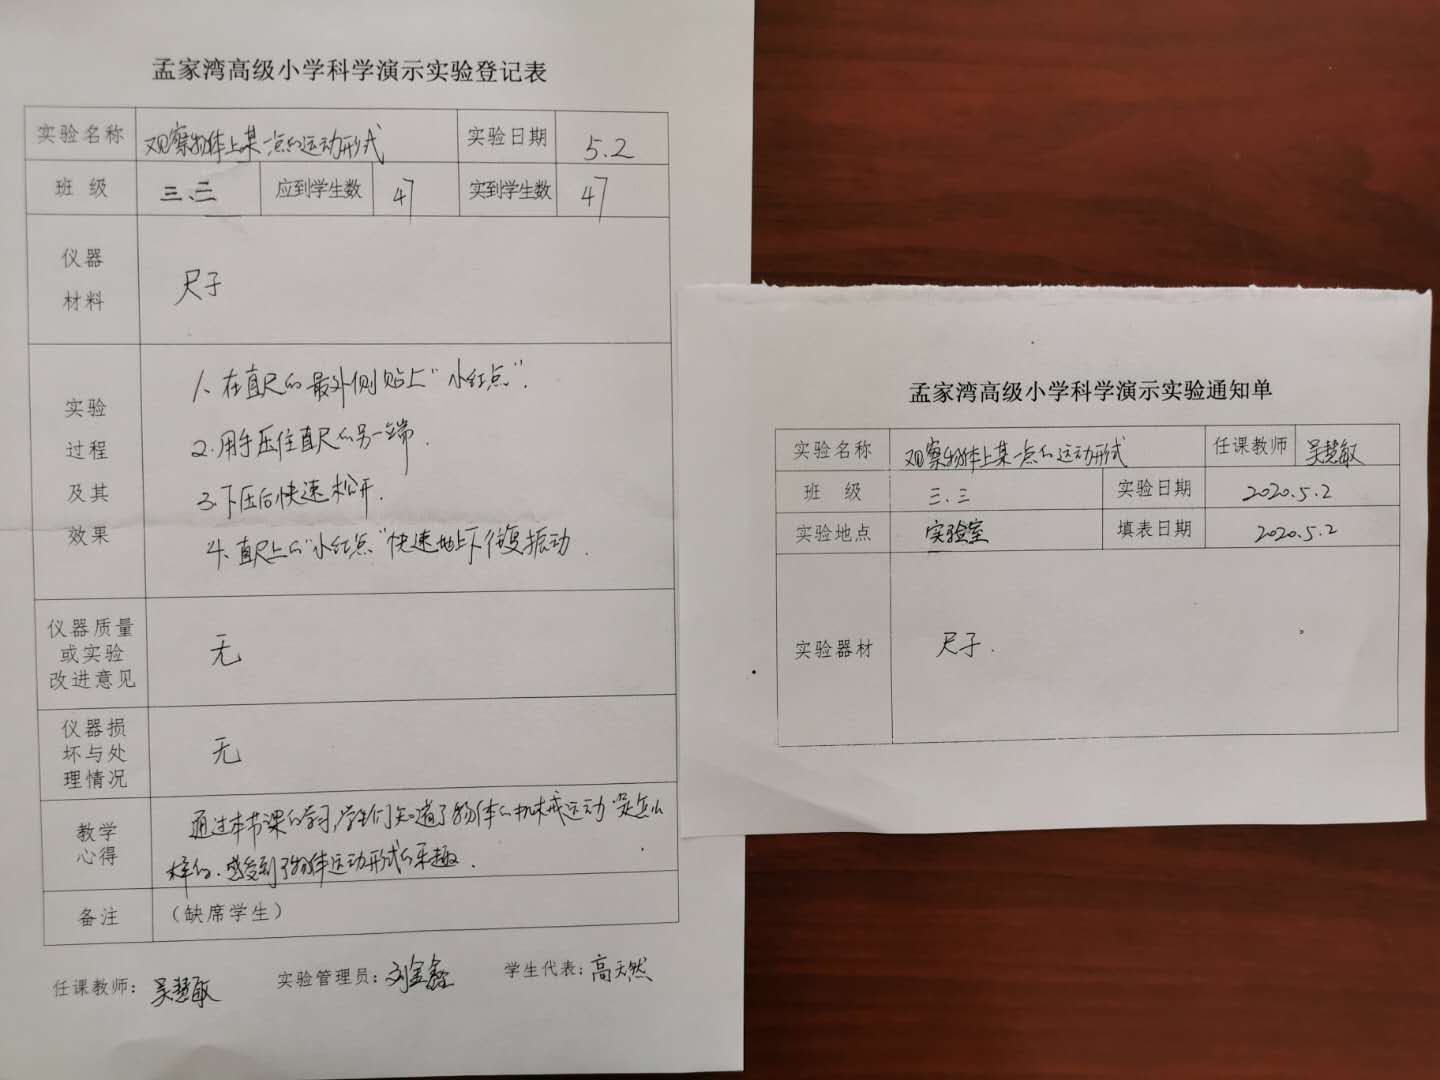 孟家湾高级小学科学演示实验登记表
实验名称 观察物体上某一点的运动形式 实验日期 5.2
班 级 三.三 应到学生数 47 实到学生数 47
仪器
材料
尺子
实验
过程
及其
效果
1、在直尺的最外侧贴上"小红点".
2.用手压住直尺的另一端.
3.下压后快速松开.
4.直尺上的"小红点"快速地上下往复振动.
仪器质量
或实验
改进意见
无
仪器损
坏与处
理情况
无
教学
心得
通过本节课的学习,学生们知道了物体的机械运动是怎么
样的.感受到了物体运动形式的乐趣.
备注 (缺席学生)
任课教师:吴慧敏 实验管理员:刘金鑫 学生代表:高天然
孟家湾高级小学科学演示实验通知单
实验名称 观察物体上某一点的运动形式 任课教师 吴慧敏
班 级 三.三 实验日期 2020.5.2
实验地点 实验室 填表日期 2020.5.2
实验器材 尺子.